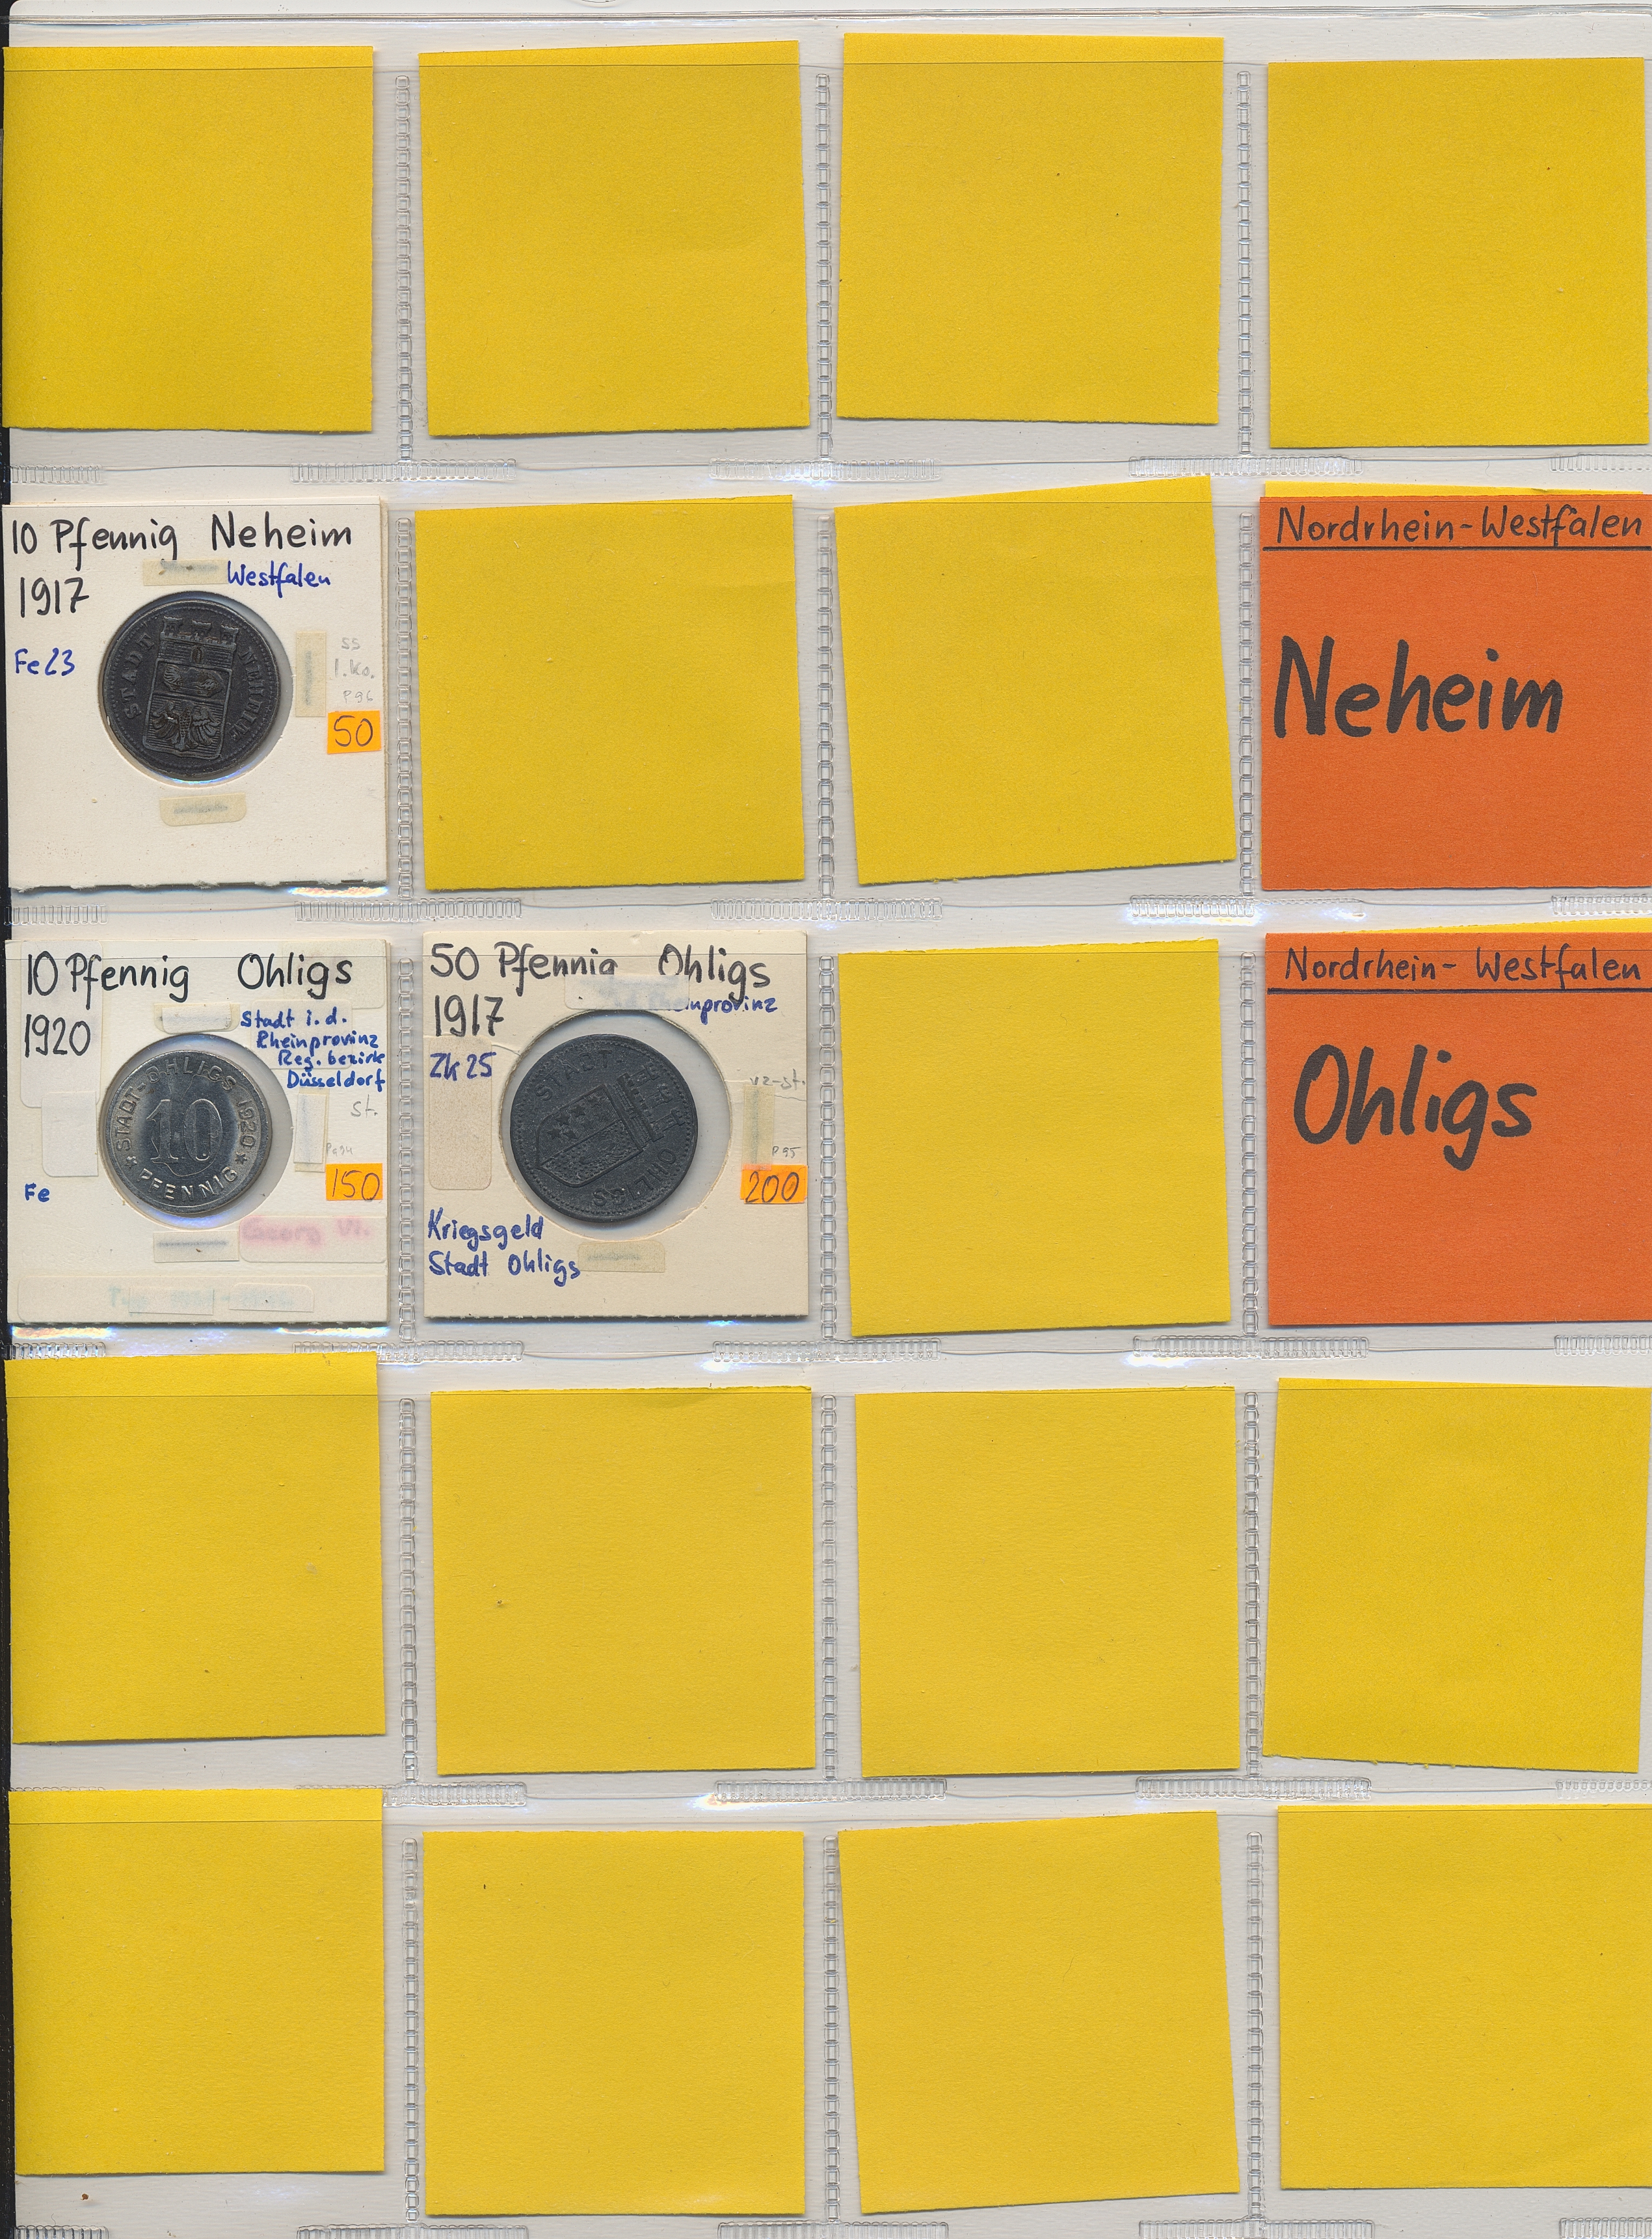 10 Pfennig Neheim
1917
Westfalen
Fe 23
ss
l. ko.
P96
50
STADT NEHEIM
Nordrhein-Westfalen
Neheim
10 Pfennig Ohligs
1920
Stadt i. d.
Rheinprovinz
Reg. bezirk
Düsseldorf
st.
Fe
150
Georg W.
STADT-OHLIGS 1920
10
PFENNIG
50 Pfennig Ohligs
1917
Rheinprovinz
Zk 25
vz-st.
P95
200
Kriegsgeld
Stadt Ohligs
STADT
OHLIGS
Nordrhein-Westfalen
Ohligs